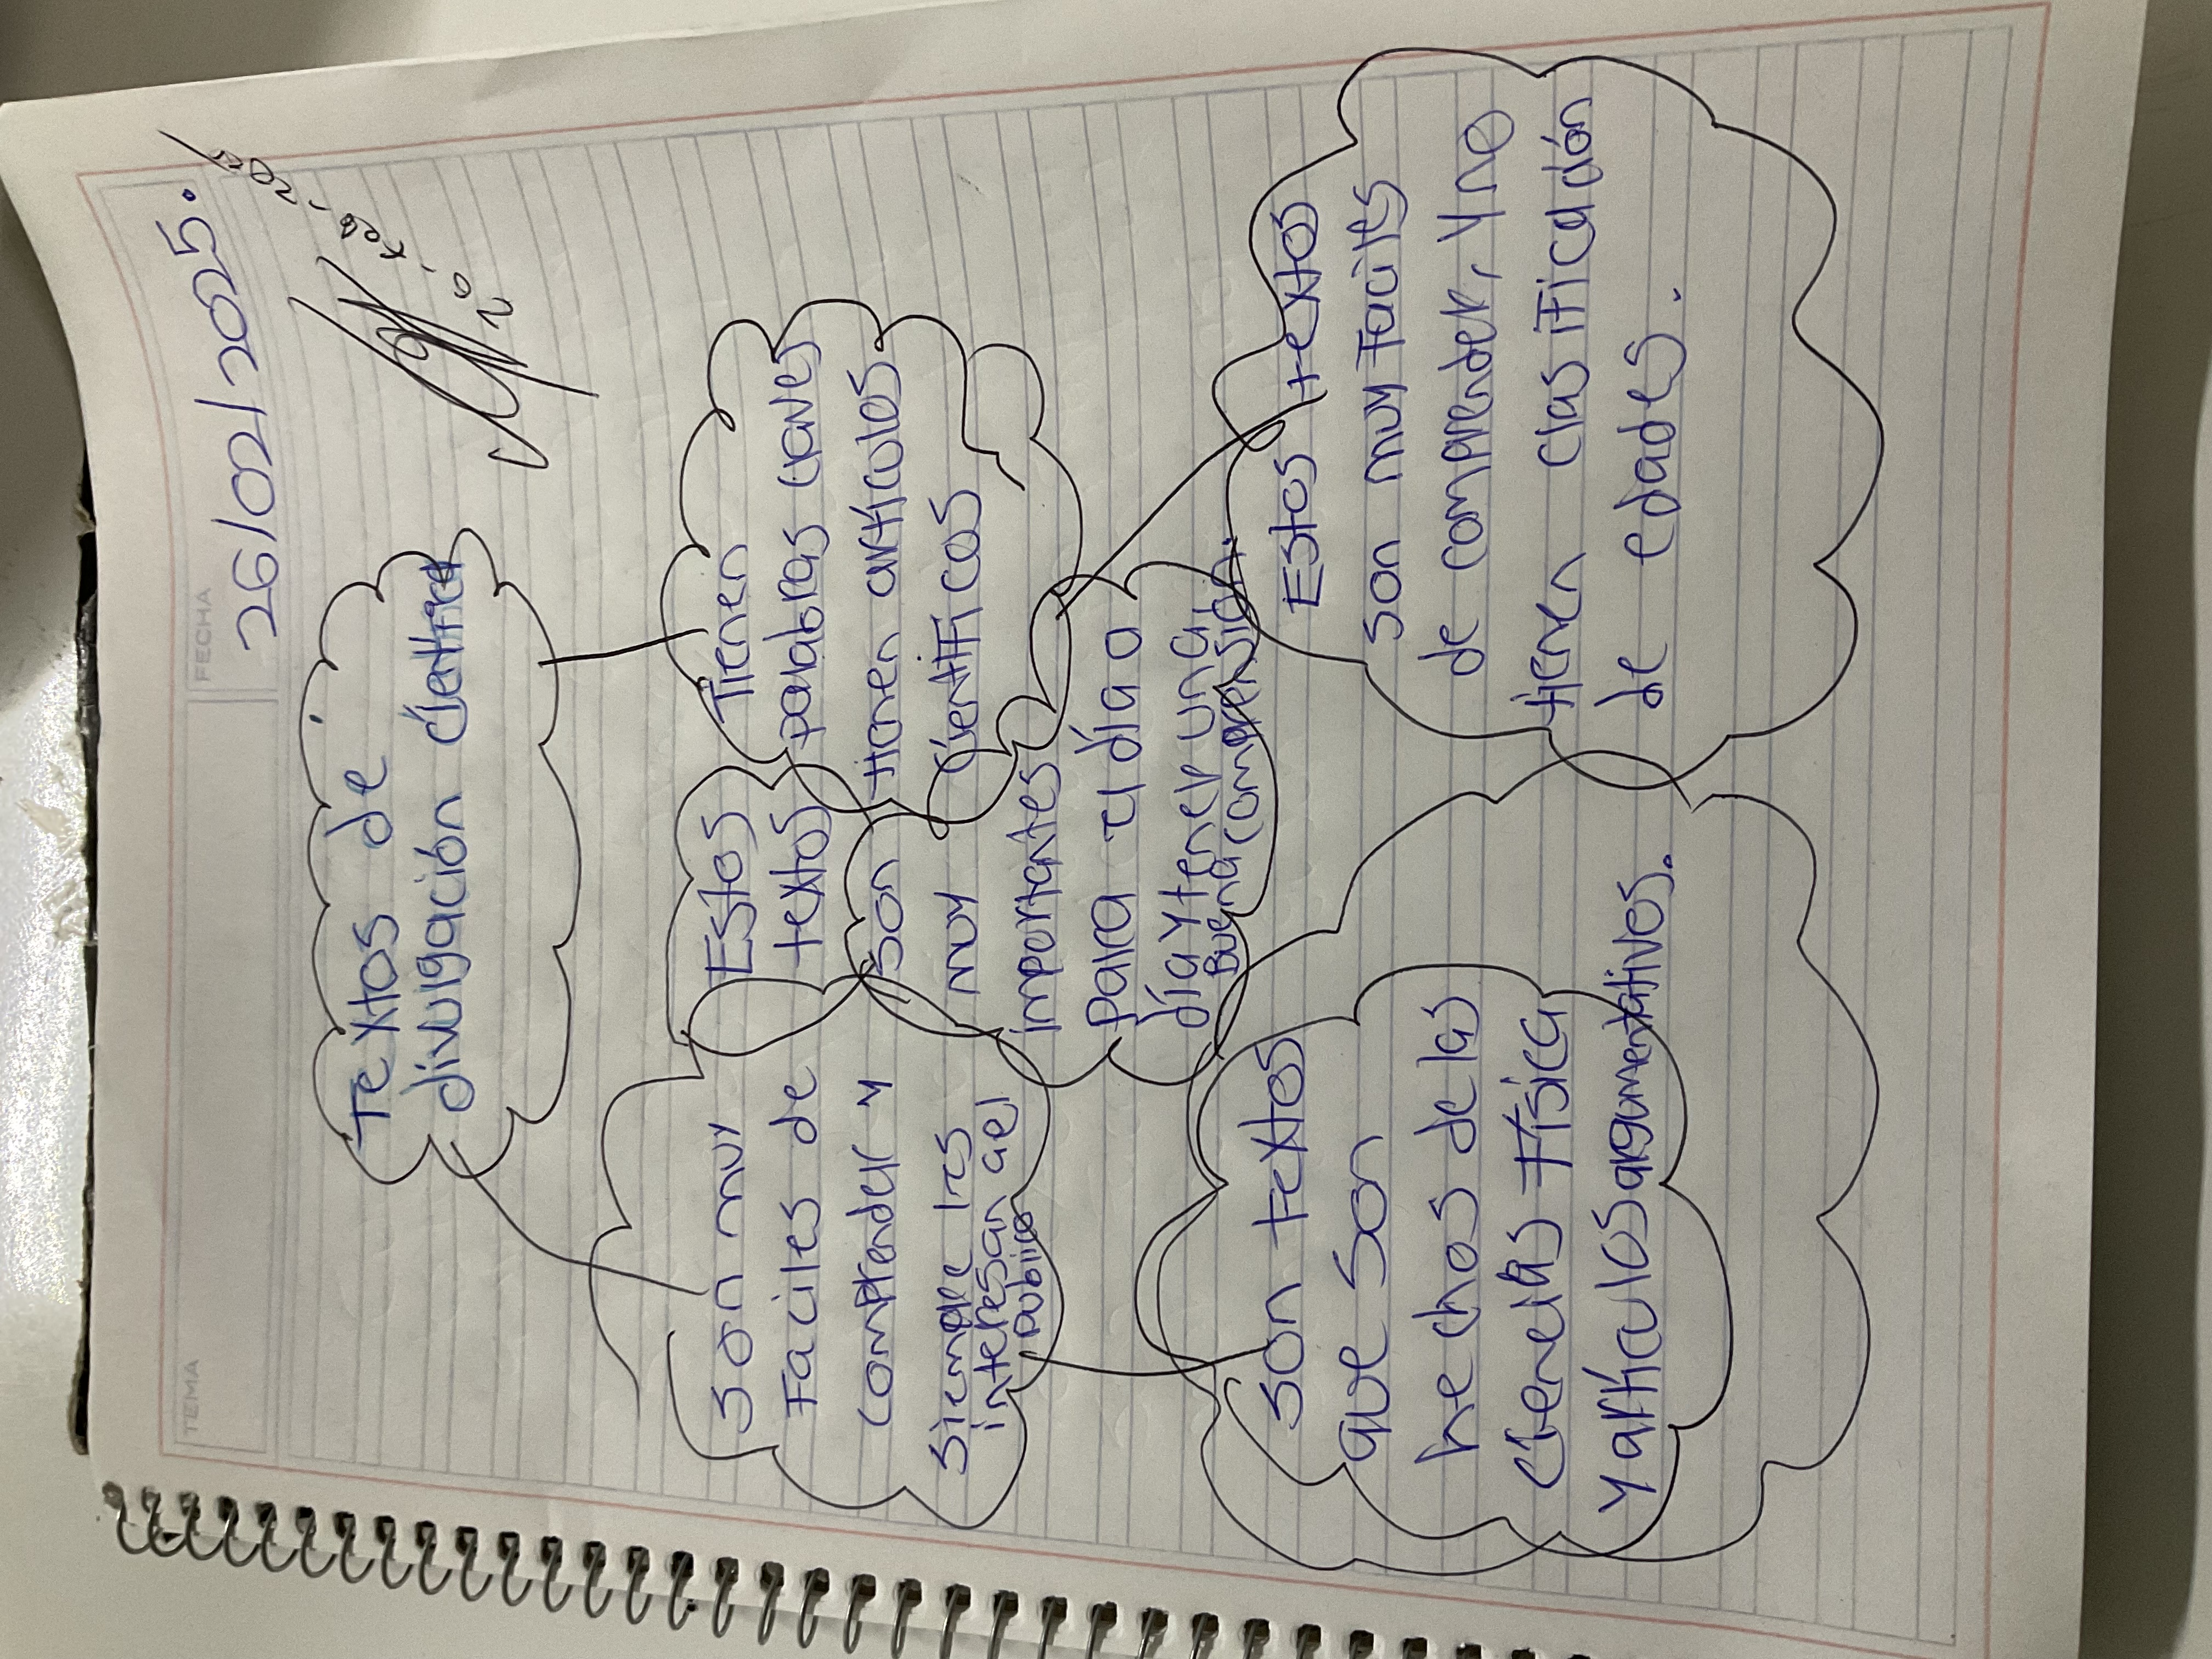 TEMA
FECHA
26/02/2025.
Textos de
divulgación científica
Son muy
Faciles de
comprender y
siempre les
interesan ael
publico
Estos
textos
son
muy
importantes
para el día a
día y tener una
Buena comprensión.
Tienen
palabras claves
tienen artículos
Cientificos
Son textos
que son
hechos de las
ciencias física
y artículos argumentativos.
Estos textos
son muy faciles
de comprender, y no
tienen clasificación
de edades.